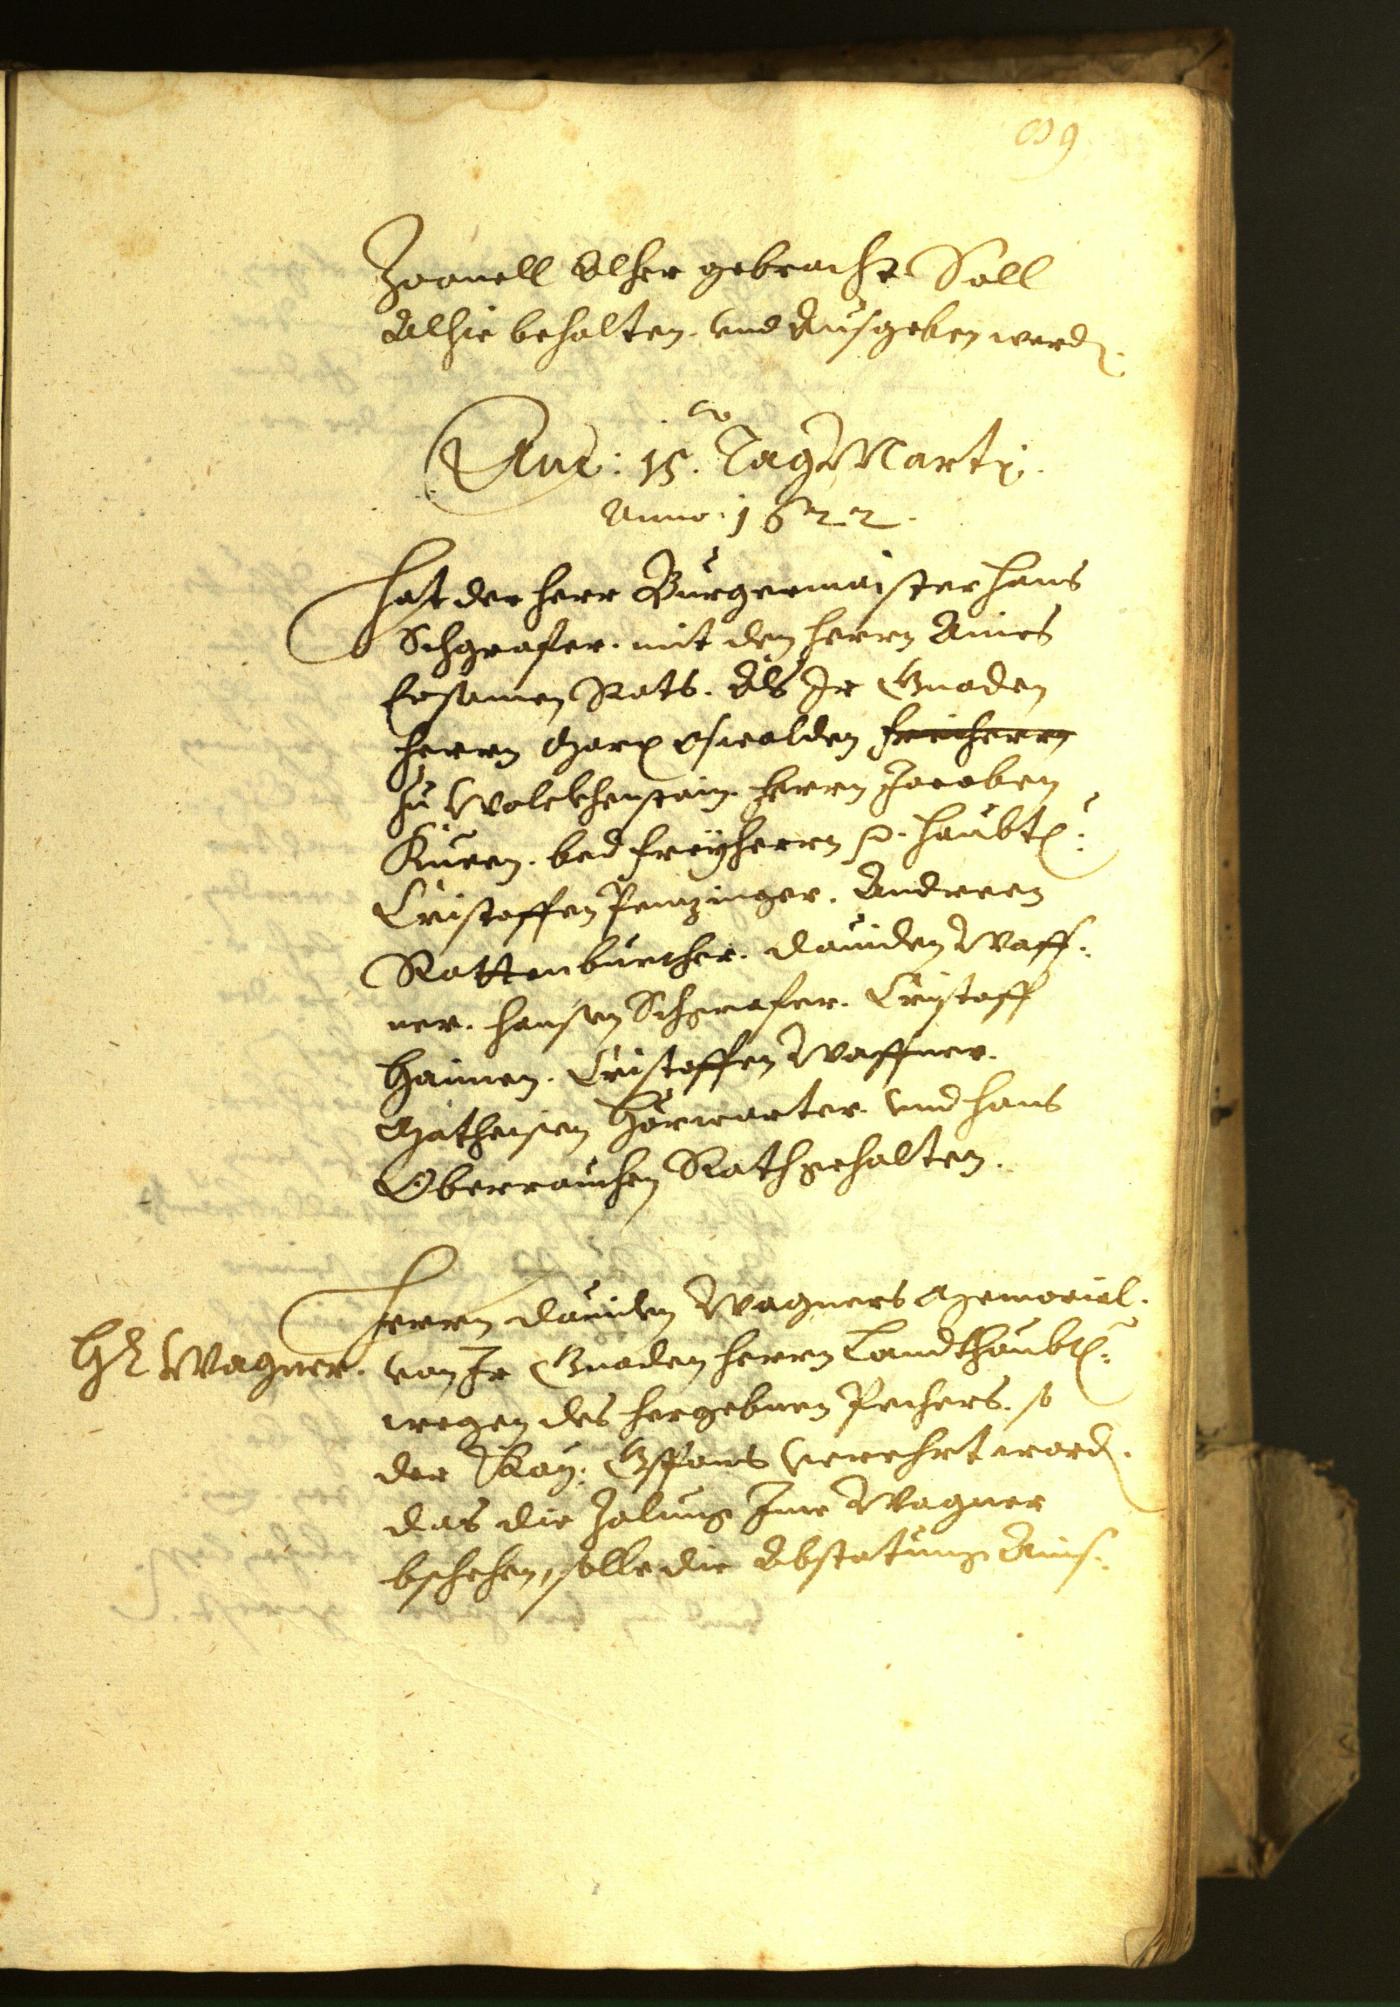 Zoanell Alher gebracht Soll
Alhie behalten. vnd Ausgeben werdn.
Am: 15. Tag Martj.
Anno: 1622.
Hat der Herr Burgermaister Hans
Schgrafer. mit den Herrn Aines
Ersamen Rats. Als Ir Gnaden
Herrn Marx Oswalden freiherrn
zu Wolckhenstain. Herrn Jacoben
Kueen. bed freyherrn Haubtl:
Cristoffen Penzinger. Andreen
Rottenburcher. Dauiden Waff:
ner. Hansen Schgrafer. Cristoff
Haimen. Cristoffen Waffner.
Matheisen Hörwarter. vnd Hans
Oberrauchen Rath gehalten.
Herrn Dauiden Wagners Memorial.
Hr Wagner. von Ir Gnaden Herrn Landthaubtl:
wegen des hergebnen Pechers. so
der Kay: verehrt wordn.
das die Zalung Ime Wagner
bschehen, solle die Abstatung Auf: